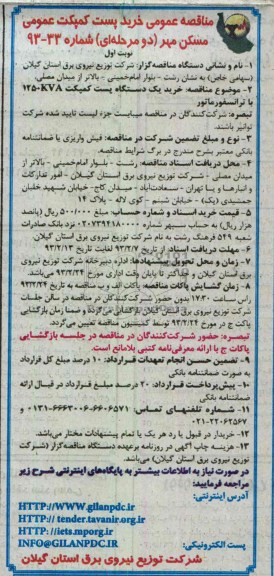 مناقصه عمومی خرید پست کمپکت عمومی
مسکن مهر (دو مرحله‌ای) شماره ۳۳-۹۳
نوبت اول
۱- نام و نشانی دستگاه مناقصه‌گزار: شرکت توزیع نیروی برق استان گیلان
(سهامی خاص) به نشان رشت - بلوار امام‌خمینی - بالاتر از میدان مصلی.
۲- موضوع مناقصه: خرید یک دستگاه پست کمپکت ۱۲۵۰-KVA
با ترانسفورماتور
تبصره: شرکت‌کنندگان در مناقصه میبایست جزء لیست تایید شده شرکت
توانیر باشند.
۳- نوع و مبلغ تضمین شرکت در مناقصه: فیش واریزی یا ضمانتنامه
بانکی معتبر بشرح مندرج در برگ شرایط مناقصه.
۴- محل دریافت اسناد مناقصه: رشت - بلوار امام‌خمینی - بالاتر از
میدان مصلی - شرکت توزیع نیروی برق استان گیلان - امور تدارکات
و انبارها و یا تهران - سعادت‌آباد - میدان کاج - خیابان شهید خلبان
جمشیدی (یک) - خیابان شبنم - کوی لاله - پلاک ۱۴
۵- قیمت خرید اسناد و شماره حساب: مبلغ ۵۰۰/۰۰۰ ریال (پانصد
هزار ریال) به حساب سپهر شماره نزد بانک صادرات
شعبه ۵۴۹ فرهنگ رشت به نام شرکت توزیع نیروی برق استان گیلان.
۶- مهلت دریافت اسناد: از تاریخ ۹۳/۳/۷ لغایت تا تاریخ ۹۳/۳/۱۲
۷- زمان و محل تحویل پیشنهادها: اداره دبیرخانه شرکت توزیع نیروی
برق استان گیلان و حداکثر تا پایان وقت اداری مورخ ۹۳/۳/۲۴ می‌باشد.
۸- زمان گشایش پاکات مناقصه: پاکات الف و ب مناقصه به تاریخ ۹۳/۳/۲۴
راس ساعت ۱۷:۳۰ بدون حضور شرکت‌کنندگان در مناقصه در سالن جلسات
شرکت توزیع نیروی برق استان گیلان بازگشائی می‌گردد و ضمنا زمان بازگشایی
پاکت ج در مورخ ۹۳/۳/۲۴ توسط کمیسیون مناقصه تعیین می‌گردد.
تبصره: حضور شرکت‌کنندگان در مناقصه در جلسه بازگشایی
پاکات ج با ارائه معرفی‌نامه کتبی بلامانع است.
۹- تضمین حسن انجام تعهدات قرارداد: ۱۰ درصد مبلغ کل قرارداد
به صورت ضمانتنامه بانکی
۱۰- پیش‌پرداخت قرارداد: ۲۰ درصد مبلغ قرارداد در قبال ارائه
ضمانتنامه بانکی
۱۱- شماره تلفنهای تماس: ۶۶۰۶۵۷۱-۶۶۶۳۰۰۶-۰۱۳۱ و
۲۲۰۶۲۵۶۷-۰۲۱
۱۲- خریدار در قبول یا رد هر یک یا تمام پیشنهادات مختار می‌باشد.
۱۳- هزینه چاپ آگهی در روزنامه برعهده دستگاه مناقصه‌گزار (شرکت
توزیع برق استان گیلان) می‌باشد.
در صورت نیاز به اطلاعات بیشتر به پایگاه‌های اینترنتی شرح زیر
مراجعه فرمایید:
آدرس اینترنتی:
HTTP://WWW.gilanpdc.ir
HTTP:// tender.tavanir.org.ir
HTTP: //iets.mporg.ir
پست الکترونیکی: INFO@GILANPDC.IR
شرکت توزیع نیروی برق استان گیلان